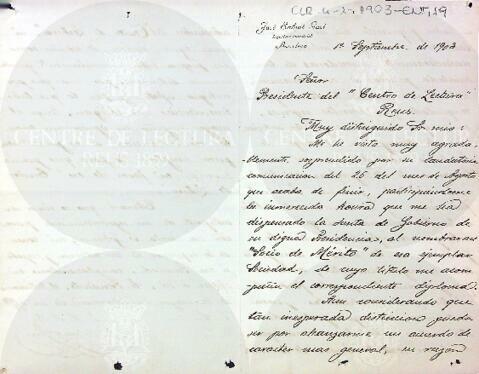 CLR 4-2, 1903-ENT, 19
1º Septiembre de 1903
Señor
Presidente del "Centro de Lectura"
Reus.
Muy distinguido Sr mio:
Me he visto muy agrada-
blemente sorprendido por su laudatoria
comunicacion del 26 del mes de Agosto
que acaba de finir, participándome
la inmerecida honra que me ha
dispensado la Junta de Gobierno de
su digna Presidencia, al nombrarme
"Socio de Mérito" de esa ejemplar
Sociedad, de cuyo título me acom-
paña el correspondiente diploma.
Aun considerando que
tan inesperada distincion pueda
ser por alcanzarme un acuerdo de
caracter mas general, en razón
CENTRE DE LECTURA
REUS 1859
CENTRE DE LECTURA